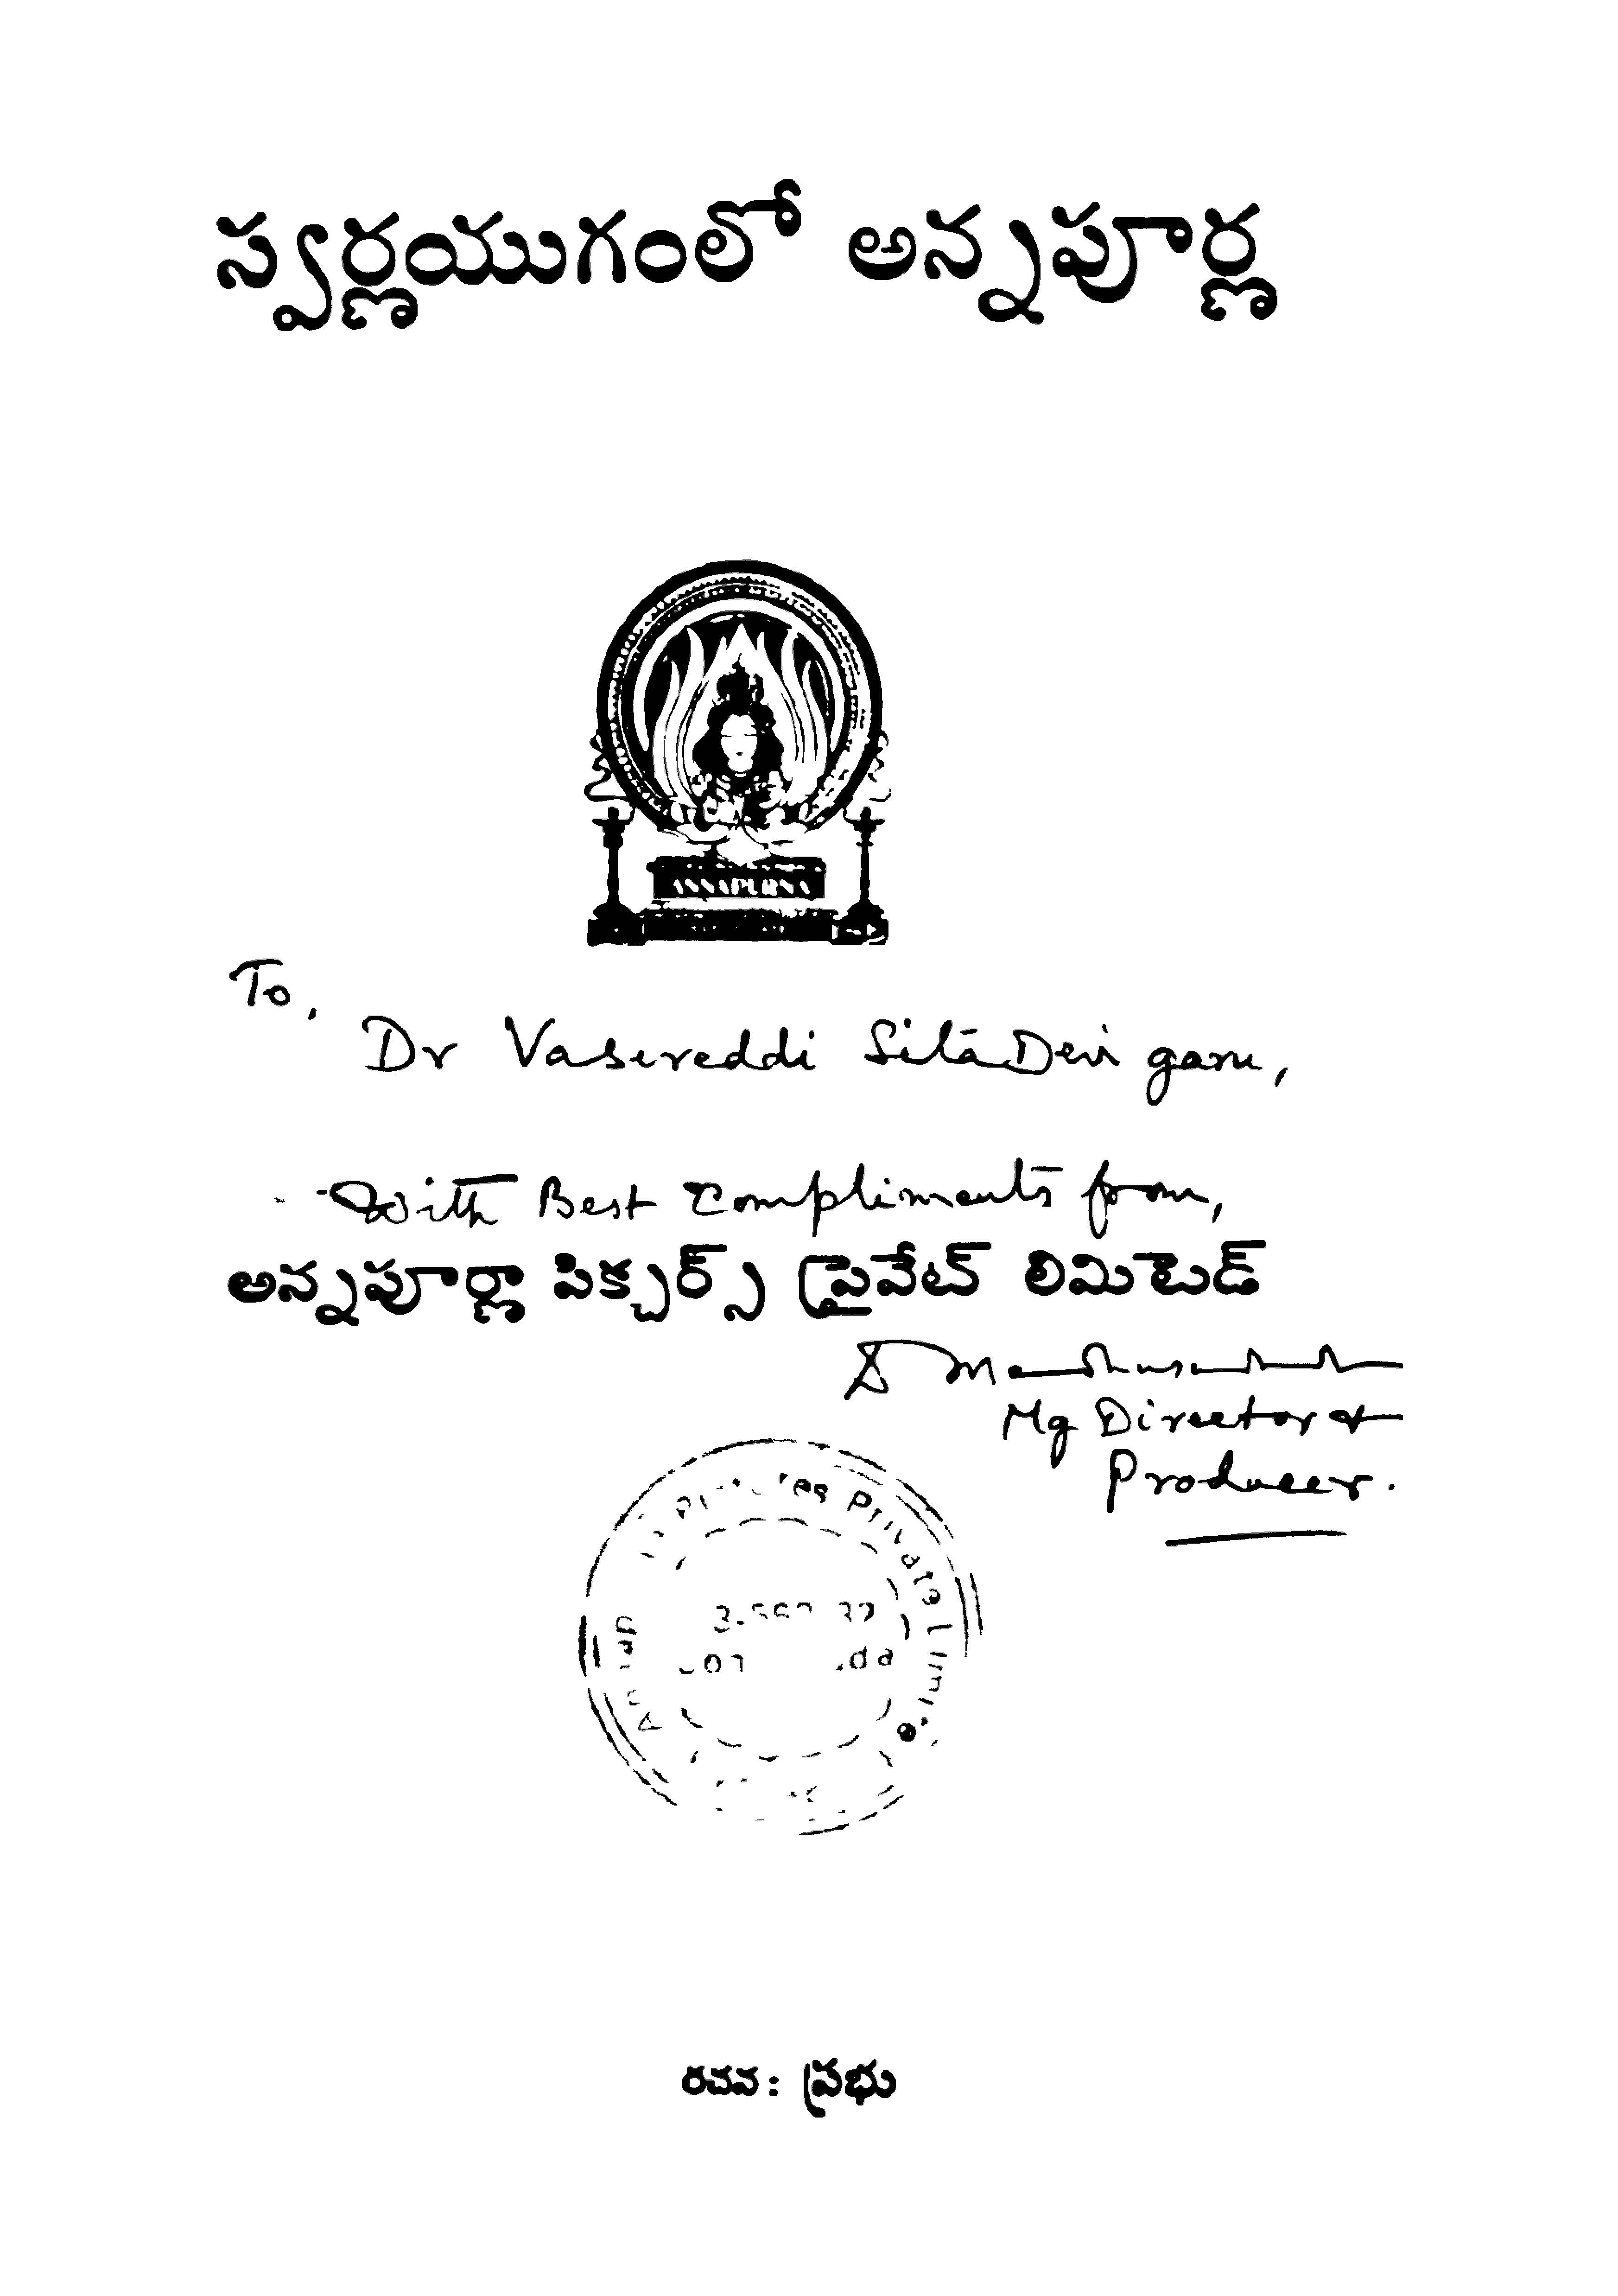 స్వర్ణయుగంలో అన్నపూర్ణ
ANNAPURNA
To,
Dr Vasireddi Sita Devi garu,
With Best Compliments from,
అన్నపూర్ణా పిక్చర్స్ ప్రైవేట్ లిమిటెడ్
Mg Director &
Producer.
Private
రచన : ప్రభు